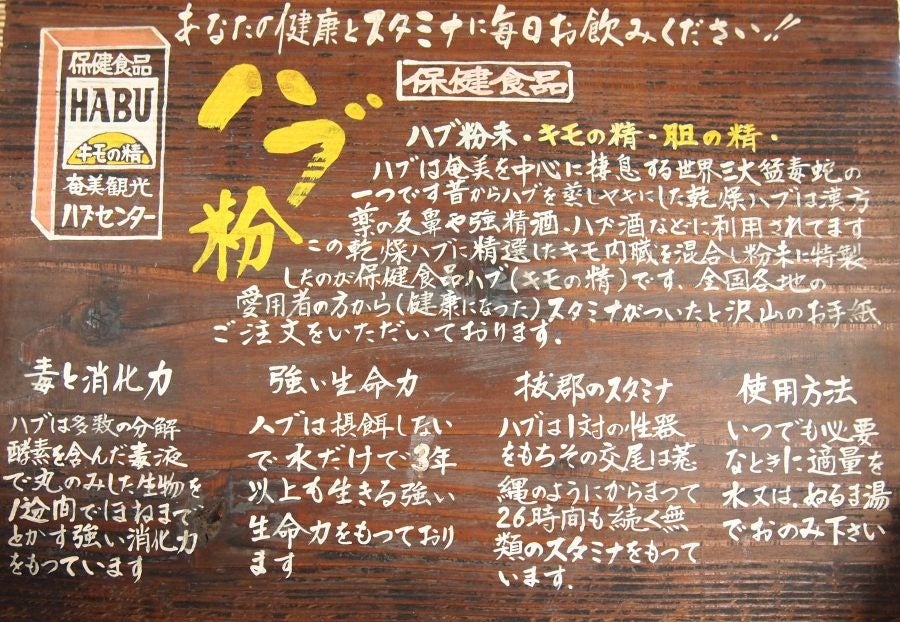 あなたの健康とスタミナに毎日お飲みください!!
保健食品
HABU
キモの精
奄美観光
ハブセンター
ハブ
粉
保健食品
ハブ粉末・キモの精・胆の精・
ハブは奄美を中心に棲息する世界三大猛毒蛇の
一つです昔からハブを蒸しヤキにした乾燥ハブは漢方
薬の反鼻や強精酒・ハブ酒などに利用されてます
この乾燥ハブに精選したキモ内臓を混合し粉末に特製
したのが保健食品ハブ(キモの精)です、全国各地の
愛用者の方から(健康になった)スタミナがついたと沢山のお手紙
ご注文をいただいております.
毒と消化力
ハブは多数の分解
酵素を含んだ毒液
で丸のみした生物を
1週間でほねまで
とかす強い消化力
をもっています
強い生命力
ハブは摂餌しない
で水だけで3年
以上も生きる強い
生命力をもっており
ます
抜郡のスタミナ
ハブは1対の性器
をもちその交尾は荒
縄のようにからまって
26時間も続く無
類のスタミナをもって
います.
使用方法
いつでも必要
なときに適量を
水又は、ぬるま湯
でおのみ下さい